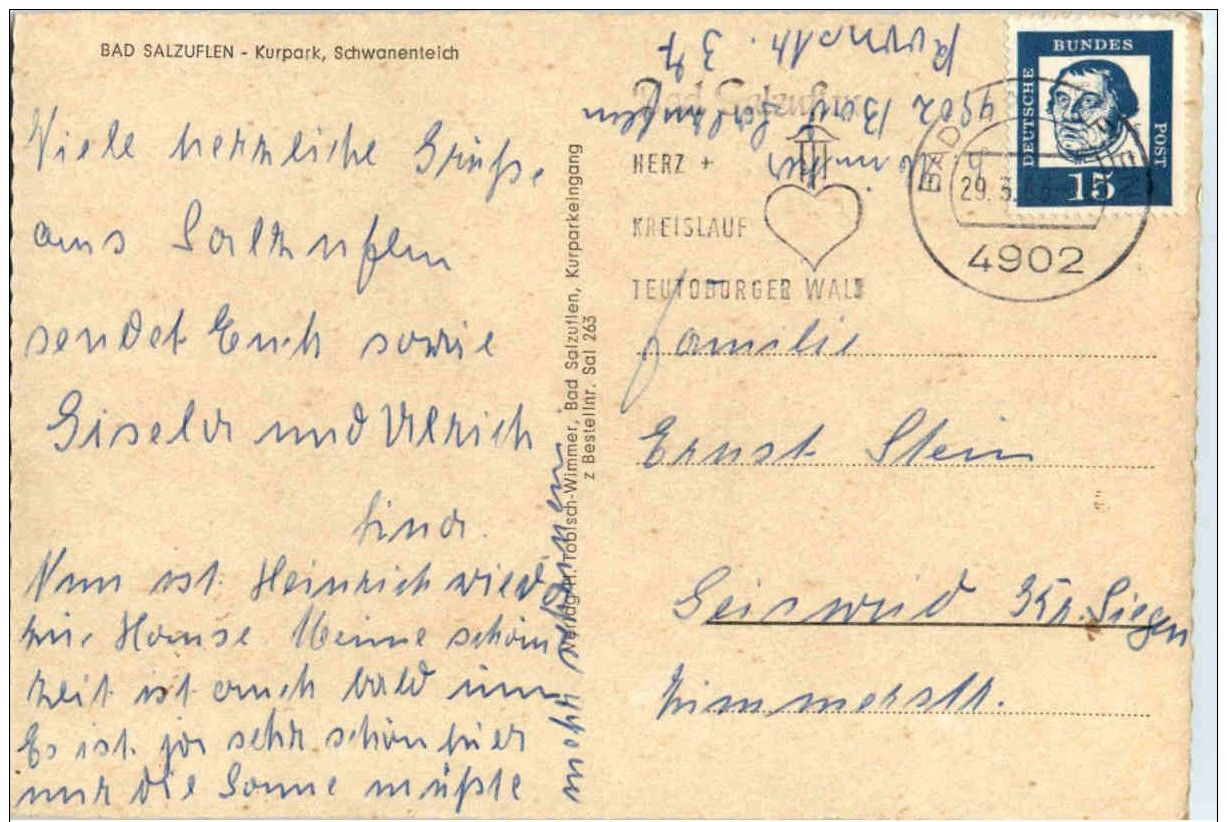 BAD SALZUFLEN - Kurpark, Schwanenteich
Viele herzliche Grüße
aus Salzuflen
sendet Euch sowie
Gisela und Ulrich
Nun ist Heinrich wied
zu Hause Meine schön
Zeit ist auch bald um
Es ist ja sehr schön hier
nur die Sonne müßte
mehr scheinen
Verlag H. Tobisch-Wimmer, Bad Salzuflen, Kurparkeingang
z Bestellnr. Sal 263
4902 Bad Salzuflen
Bad Salzuflen
HERZ +
KREISLAUF
TEUTOBURGER WALD
DEUTSCHE BUNDES POST
15
BAD
29. 3.
4902
Familie
Ernst Stein
Geisweid Kr. Siegen
Zimmerstr.